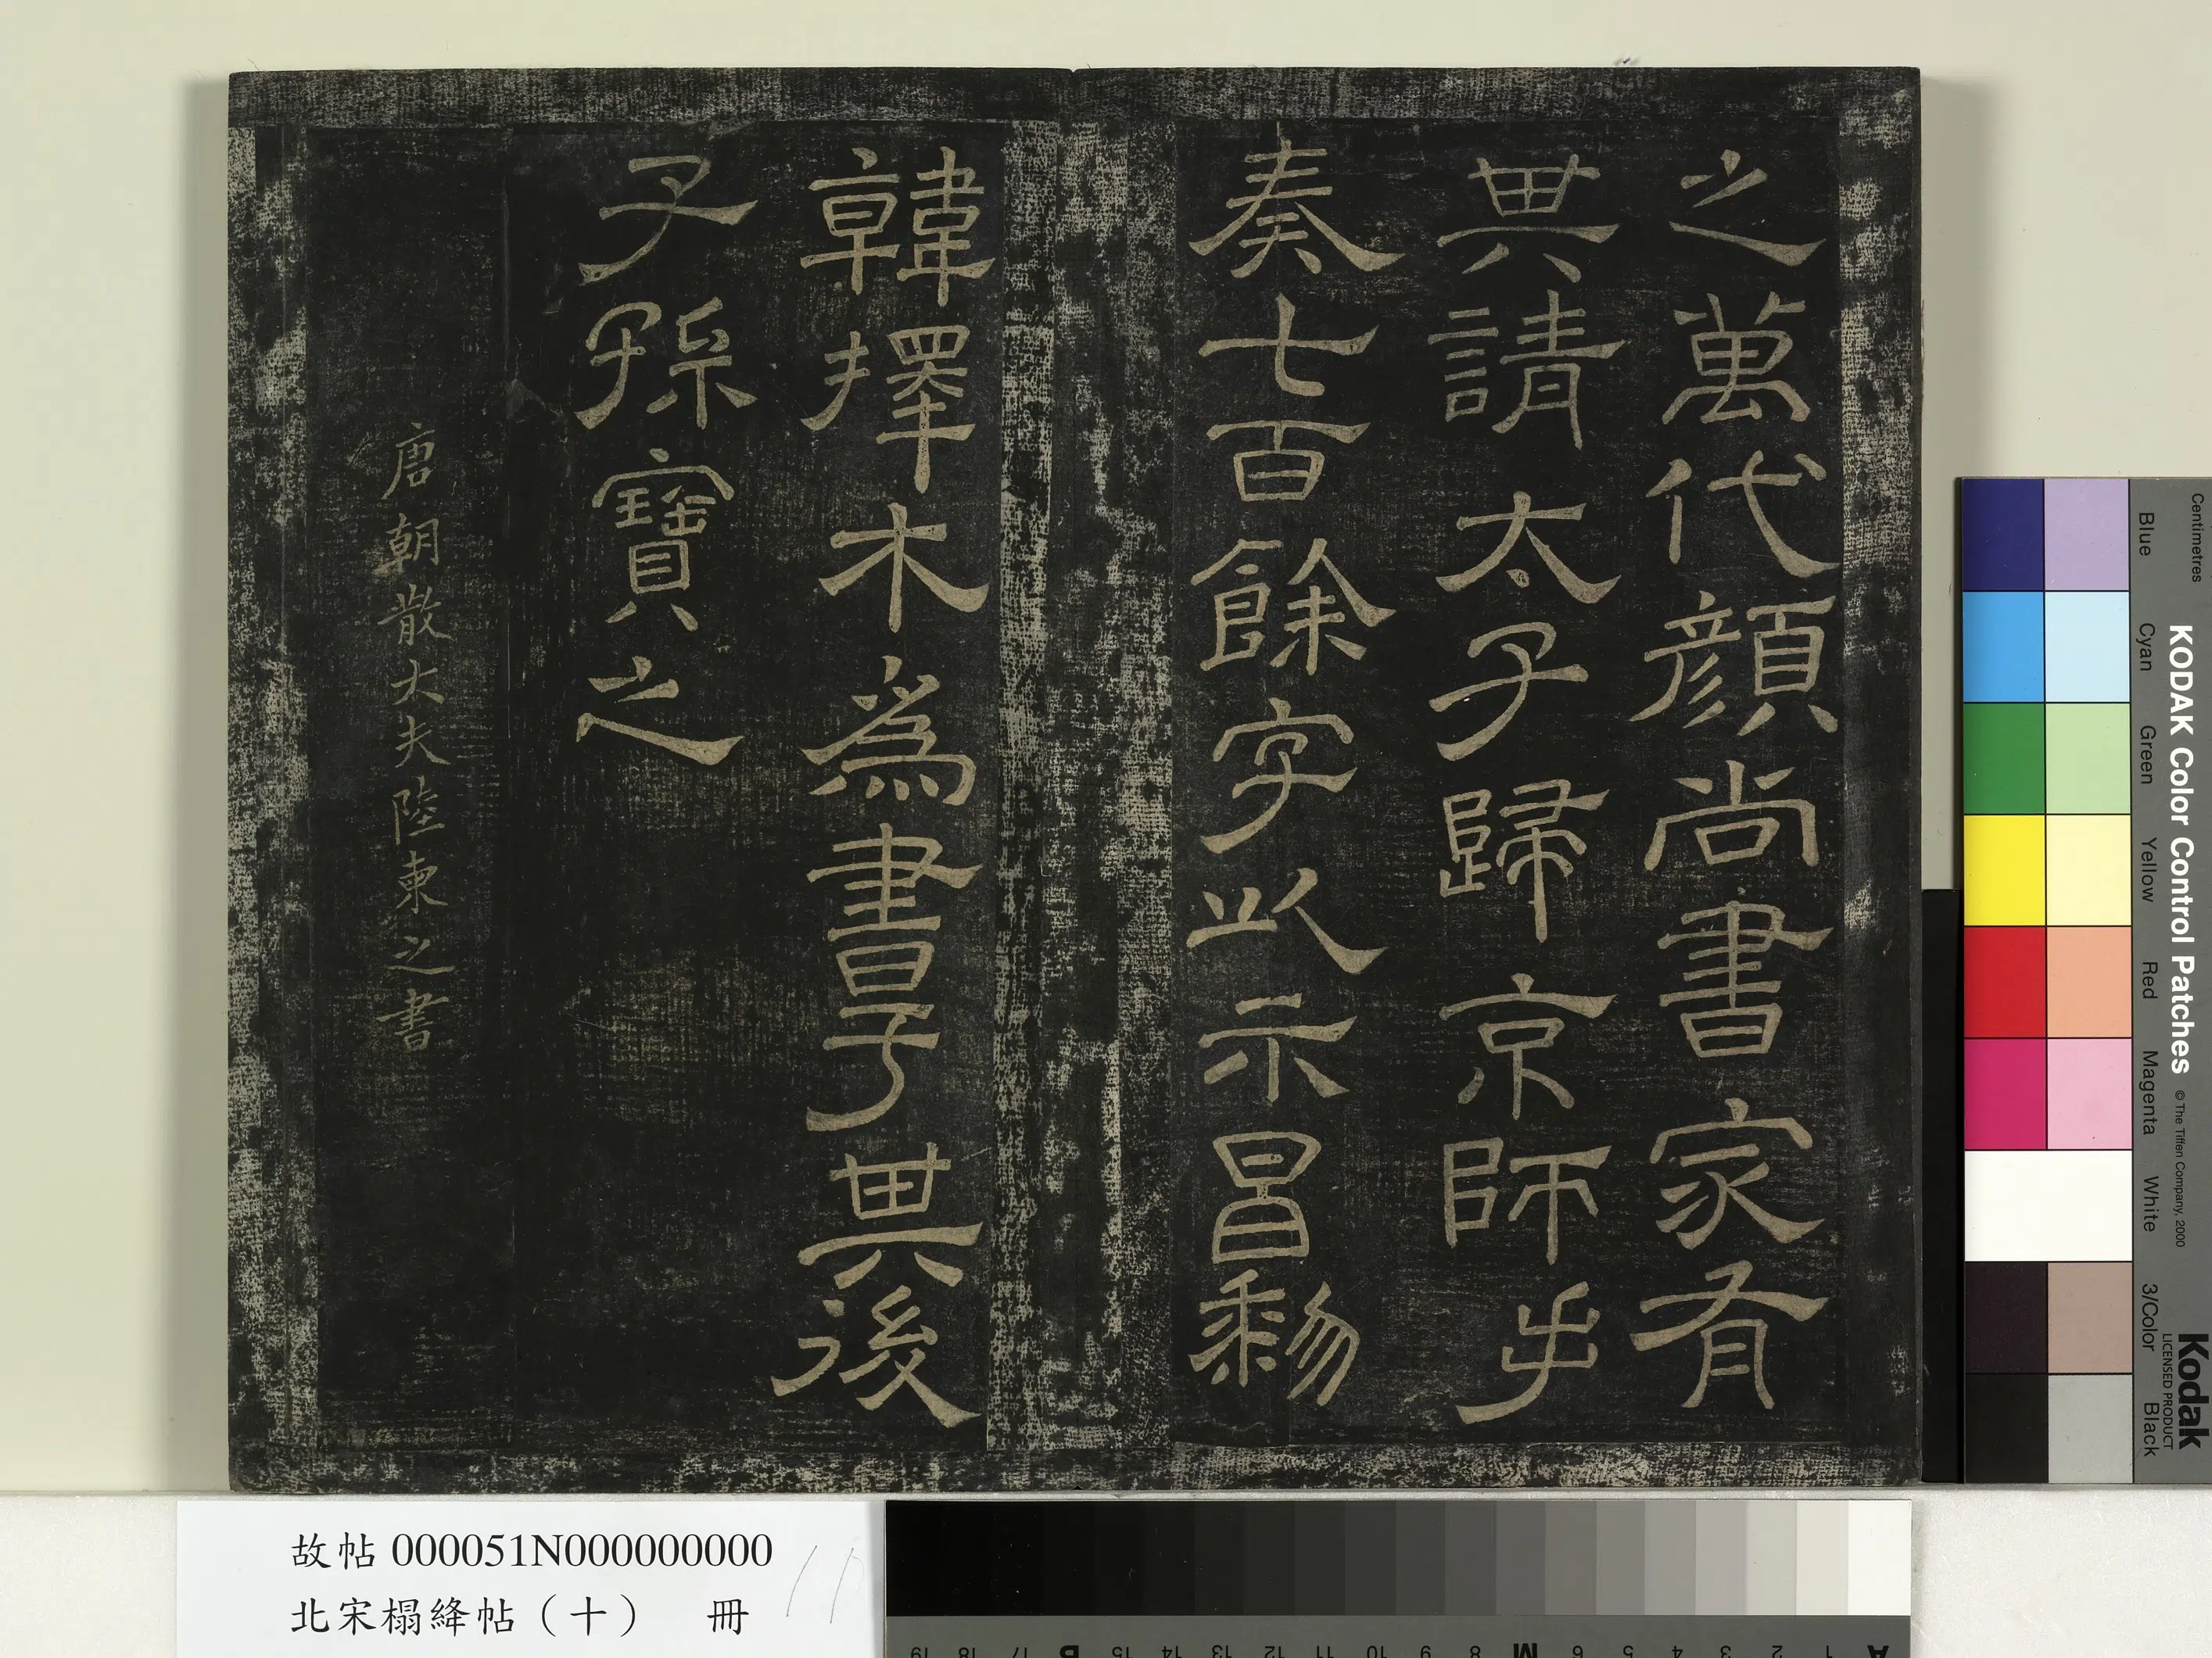 之萬代顏尚書家有
其請太子歸京師手
奏七百餘字以示昌黎
韓擇木為書于其後
子孫寶之
唐朝散大夫陸柬之書
故帖 000051N000000000
北宋榻絳帖（十） 冊
KODAK Color Control Patches
© The Tiffen Company, 2000
Kodak
LICENSED PRODUCT
Centimetres
Blue
Cyan
Green
Yellow
Red
Magenta
White
3/Color
Black
A 1 2 3 4 5 6 M 8 9 10 11 12 13 14 15 B 17 18 19